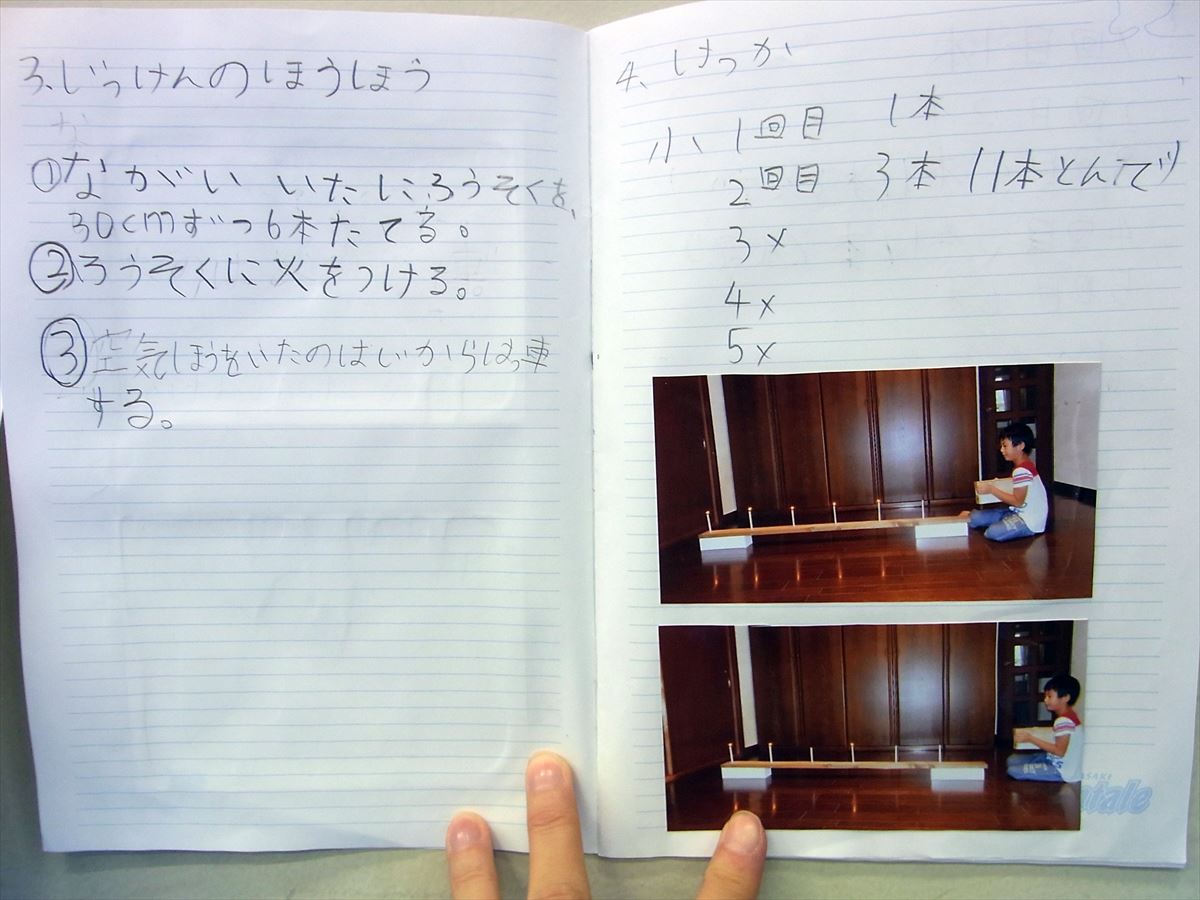 3.じっけんのほうほう
①ながいいたにろうそくを、
30cmずつ6本たてる。
②ろうそくに火をつける。
③空気ほうをいたのはしからはっ車
する。
4、けっか
小、1回目 1本
2回目 3本 11本とんで"
3×
4×
5×